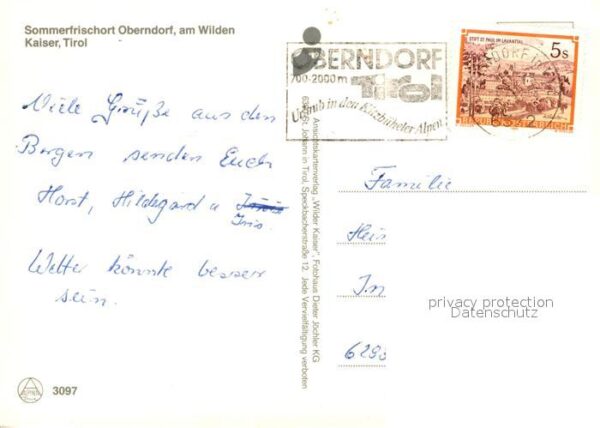 Sommerfrischort Oberndorf, am Wilden
Kaiser, Tirol
Viele Grüße aus den
Bergen senden Euch
Horst, Hildegard u
Iris.
Wetter könnte besser
sein.
3097
Ansichtskartenverlag „Wilder Kaiser", Fotohaus Dieter Jöchler KG
Johann in Tirol, Speckbacherstraße 12. Jede Vervielfältigung verboten
OBERNDORF
700-2000m
Tirol
Urlaub in den Kitzbüheler Alpen
STIFT ST. PAUL IM LAVANTTAL
5s
REPUBLIK ÖSTERREICH
Familie
Hein
In
6293
privacy protection
Datenschutz